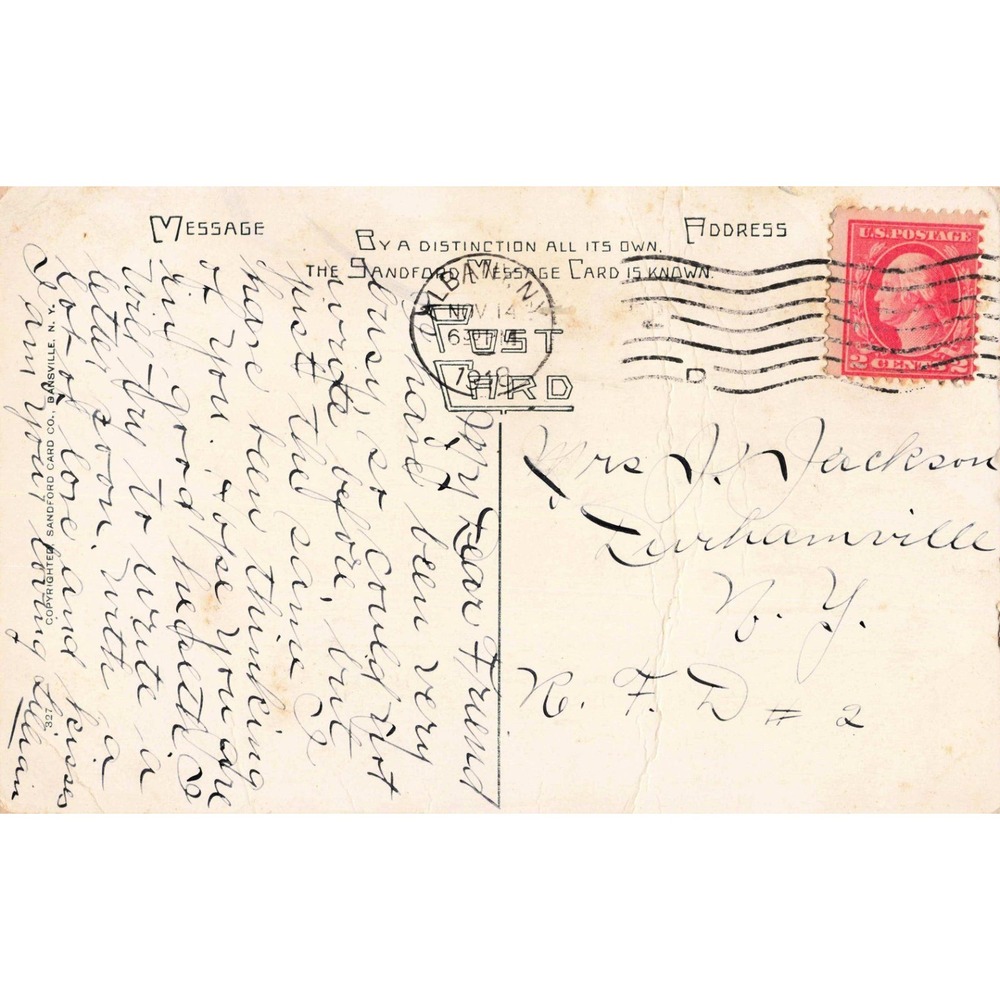 MESSAGE
BY A DISTINCTION ALL ITS OWN.
THE SANDFORD MESSAGE CARD IS KNOWN.
ADDRESS
POST
CARD
ALBANY, N.Y.
NOV 14
U.S. POSTAGE
2 CENTS 2
Mrs J. Jackson
Durhamville
N. Y.
R. F. D # 2
My Dear Friend
been very
busy, so could not
write before, but
just the same I
have been thinking
of you. hope you are
in good health I
will try to write a
letter soon, with a
lot of love and kisses
I am your loving Lillian
327 COPYRIGHTED, SANDFORD CARD CO., DANSVILLE, N. Y.